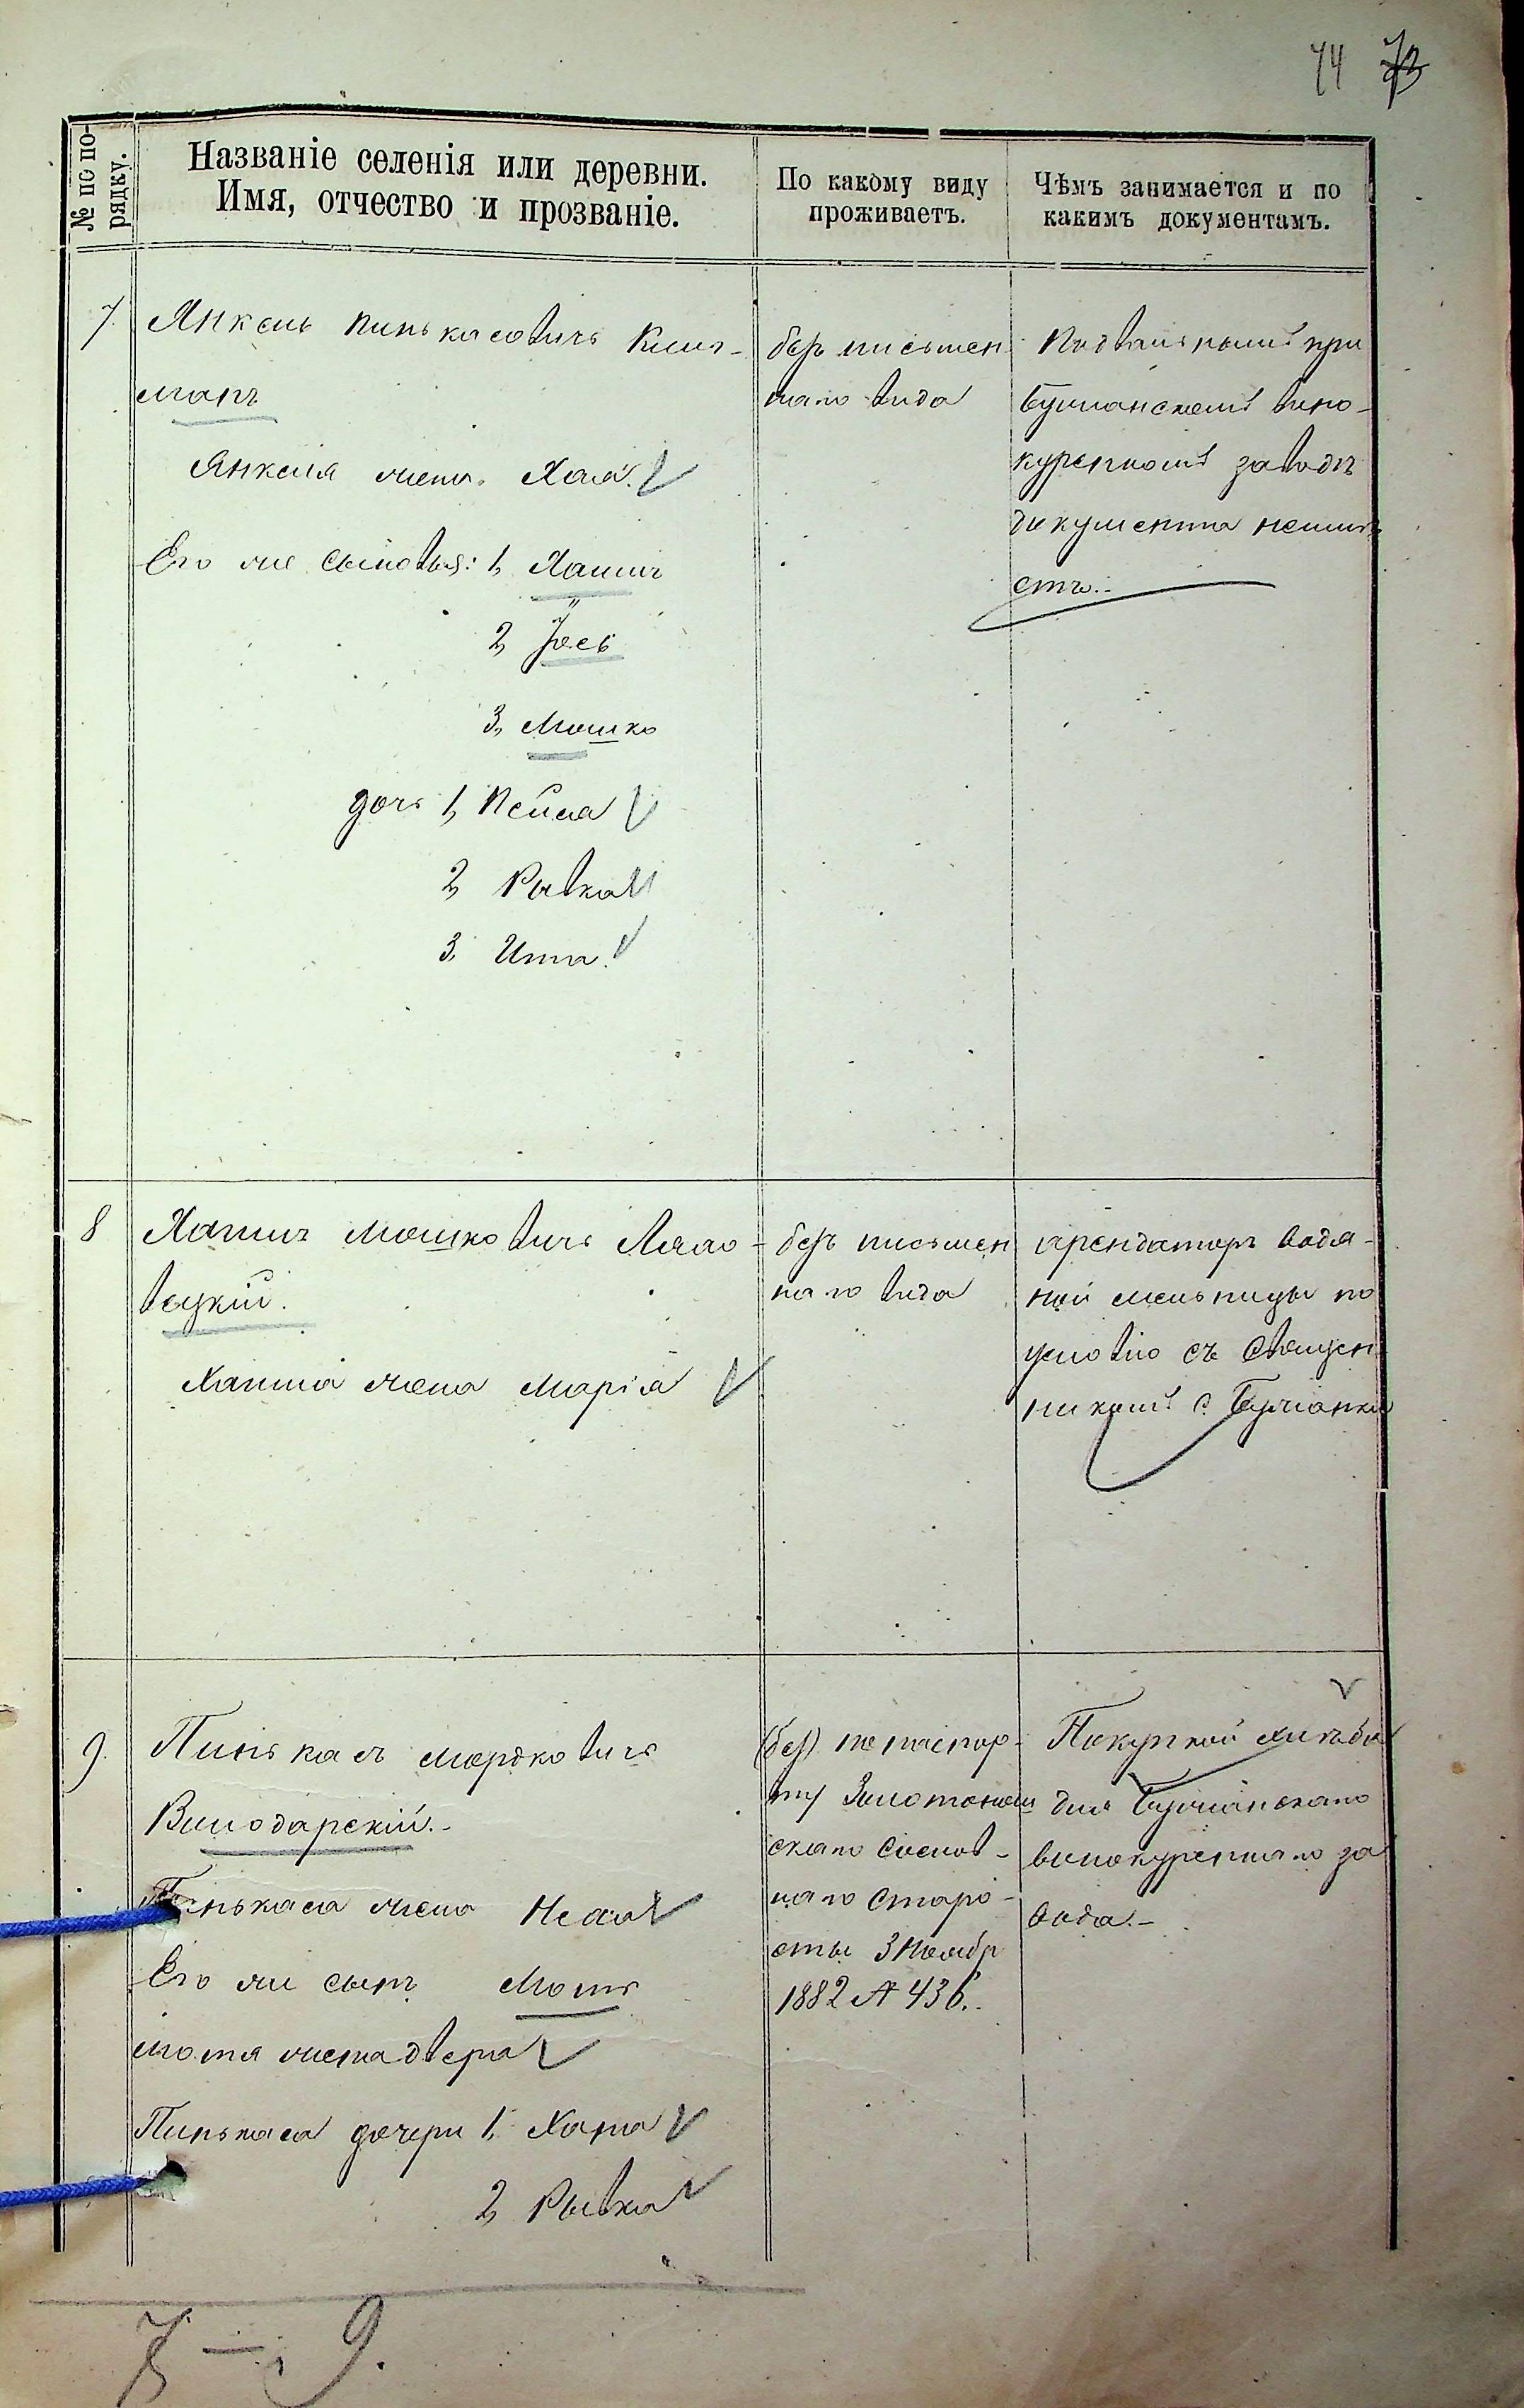 74 73
№ по по-
рядку.
Названіе селенія или деревни.
Имя, отчество и прозваніе.
По какому виду
проживаетъ.
Чѣмъ занимается и по
какимъ документамъ.
7. Янкель Пинькасовичъ
манъ
Янкеля жена Хая.
Его же сыновья: 1, Хаимъ
2, Іось
3, Мошко
дочь 1, Пейса
2, Рывка
3, Ита.
безъ письмен
наго вида
Подвальный при
Бужанскомъ вино-
куренномъ заводѣ
документа неимѣ
етъ.-
8 Хаимъ Мошковичъ
вецкій.
Хаима жена Марія
безъ письмен
наго вида
арендаторъ водя-
ной мельницы по
условію съ Священ
никомъ с. Бужанки
9. Пинькасъ Мордковичъ
Винодарскій.-
Пинькаса жена
Его же сынъ Моть
Мотя жена Двера
Пинькаса дочери 1, Хана
2, Рывка
(без) по паспор-
ту Золотонош
скаго Сослов-
наго старо-
сты 3 Ноябр
1882 № 436.
Покупкой хлѣба
для Бужанскаго
винокуреннаго за
вода.-
7 - 9.